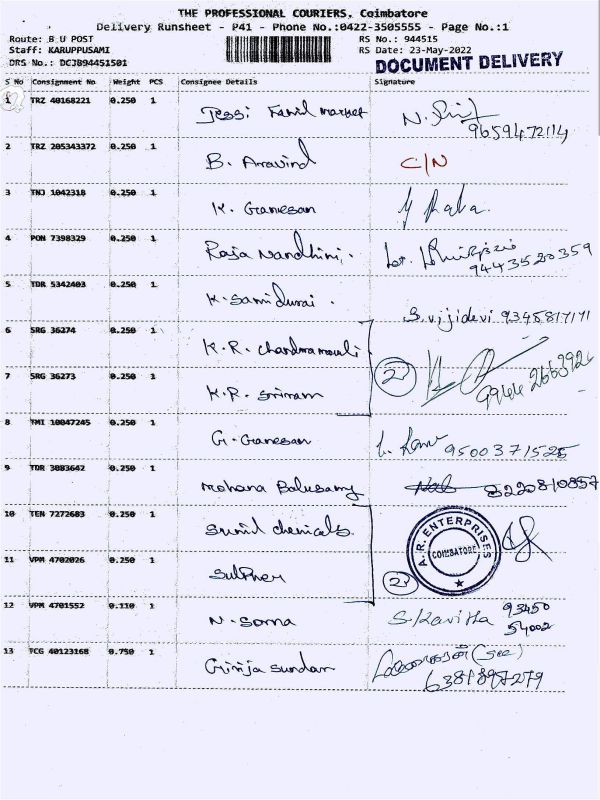 THE PROFESSIONAL COURIERS, Coimbatore
Delivery Runsheet - P41 - Phone No.:0422-3505555 - Page No.:1
Route: B U POST
RS No.: 944515
Staff: KARUPPUSAMI
RS Date: 23-May-2022
DRS No.: DCJB94451501
DOCUMENT DELIVERY
S No Consignment No Weight PCS Consignee Details Signature
1 TRZ 40168221 0.250 1 Jessi Tamil market
9659472114
2 TRZ 205343372 0.250 1 B. Aravind C/N
3 TNJ 1042318 0.250 1 K. Ganesan
4 PON 7398329 0.250 1 Raja Nandhini.
9443520359
5 TDR 5342403 0.250 1 K. Samidurai. S. vijidevi 9345817171
6 SRG 36274 0.250 1 K.R. chandramouli
7 SRG 36273 0.250 1 K.R. Sriram 2
8 TMI 10047245 0.250 1 G. Ganesan 9500371525
9 TDR 3083642 0.250 1 Mohana Balusamy 8220810857
10 TEN 7272683 0.250 1 Sunil chemicals.
A.R. ENTERPRISES
COIMBATORE
11 VPM 4702026 0.250 1 Sulpher 2
12 VPM 4701552 0.110 1 N. Soma S. Kavitha 93450
54002
13 TCG 40123168 0.750 1 Girija Sundar
6381897279